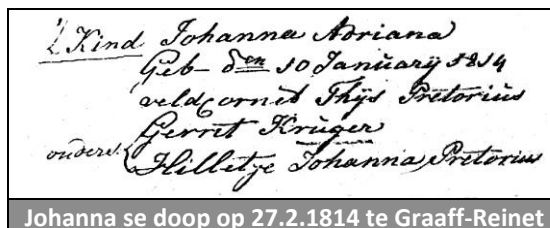 't Kind Johanna Adriana
Geb- den 10 January 1814
veldcornet Thijs Pretorius
Gerret Krüger
ouders Hilletje Johanna Pretorius
Johanna se doop op 27.2.1814 te Graaff-Reinet